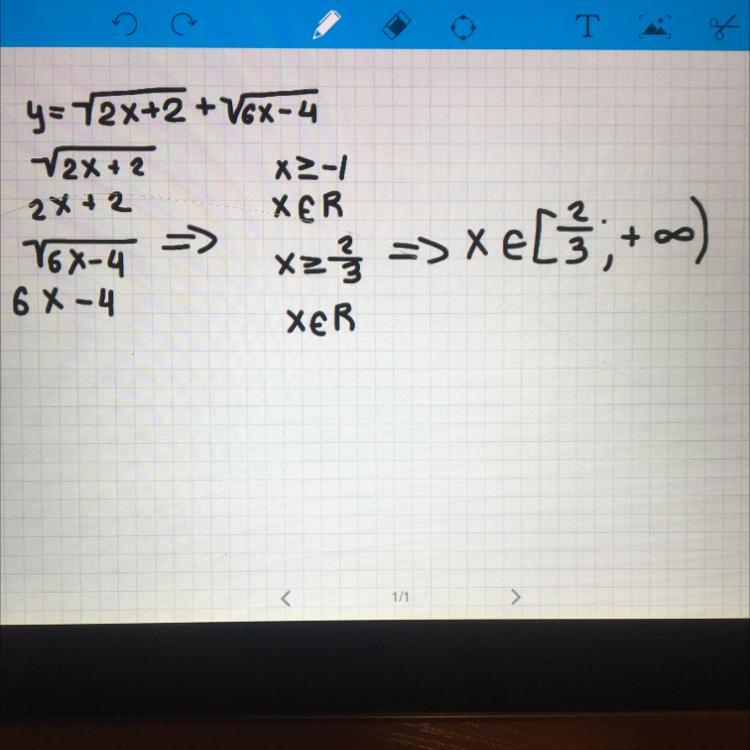 T
y=√2x+2 + √6x-4
√2x+2 x≥-1
2x+2 x∈R
√6x-4 => x≥2/3 => x∈[2/3;+∞)
6x-4 x∈R
< 1/1 >